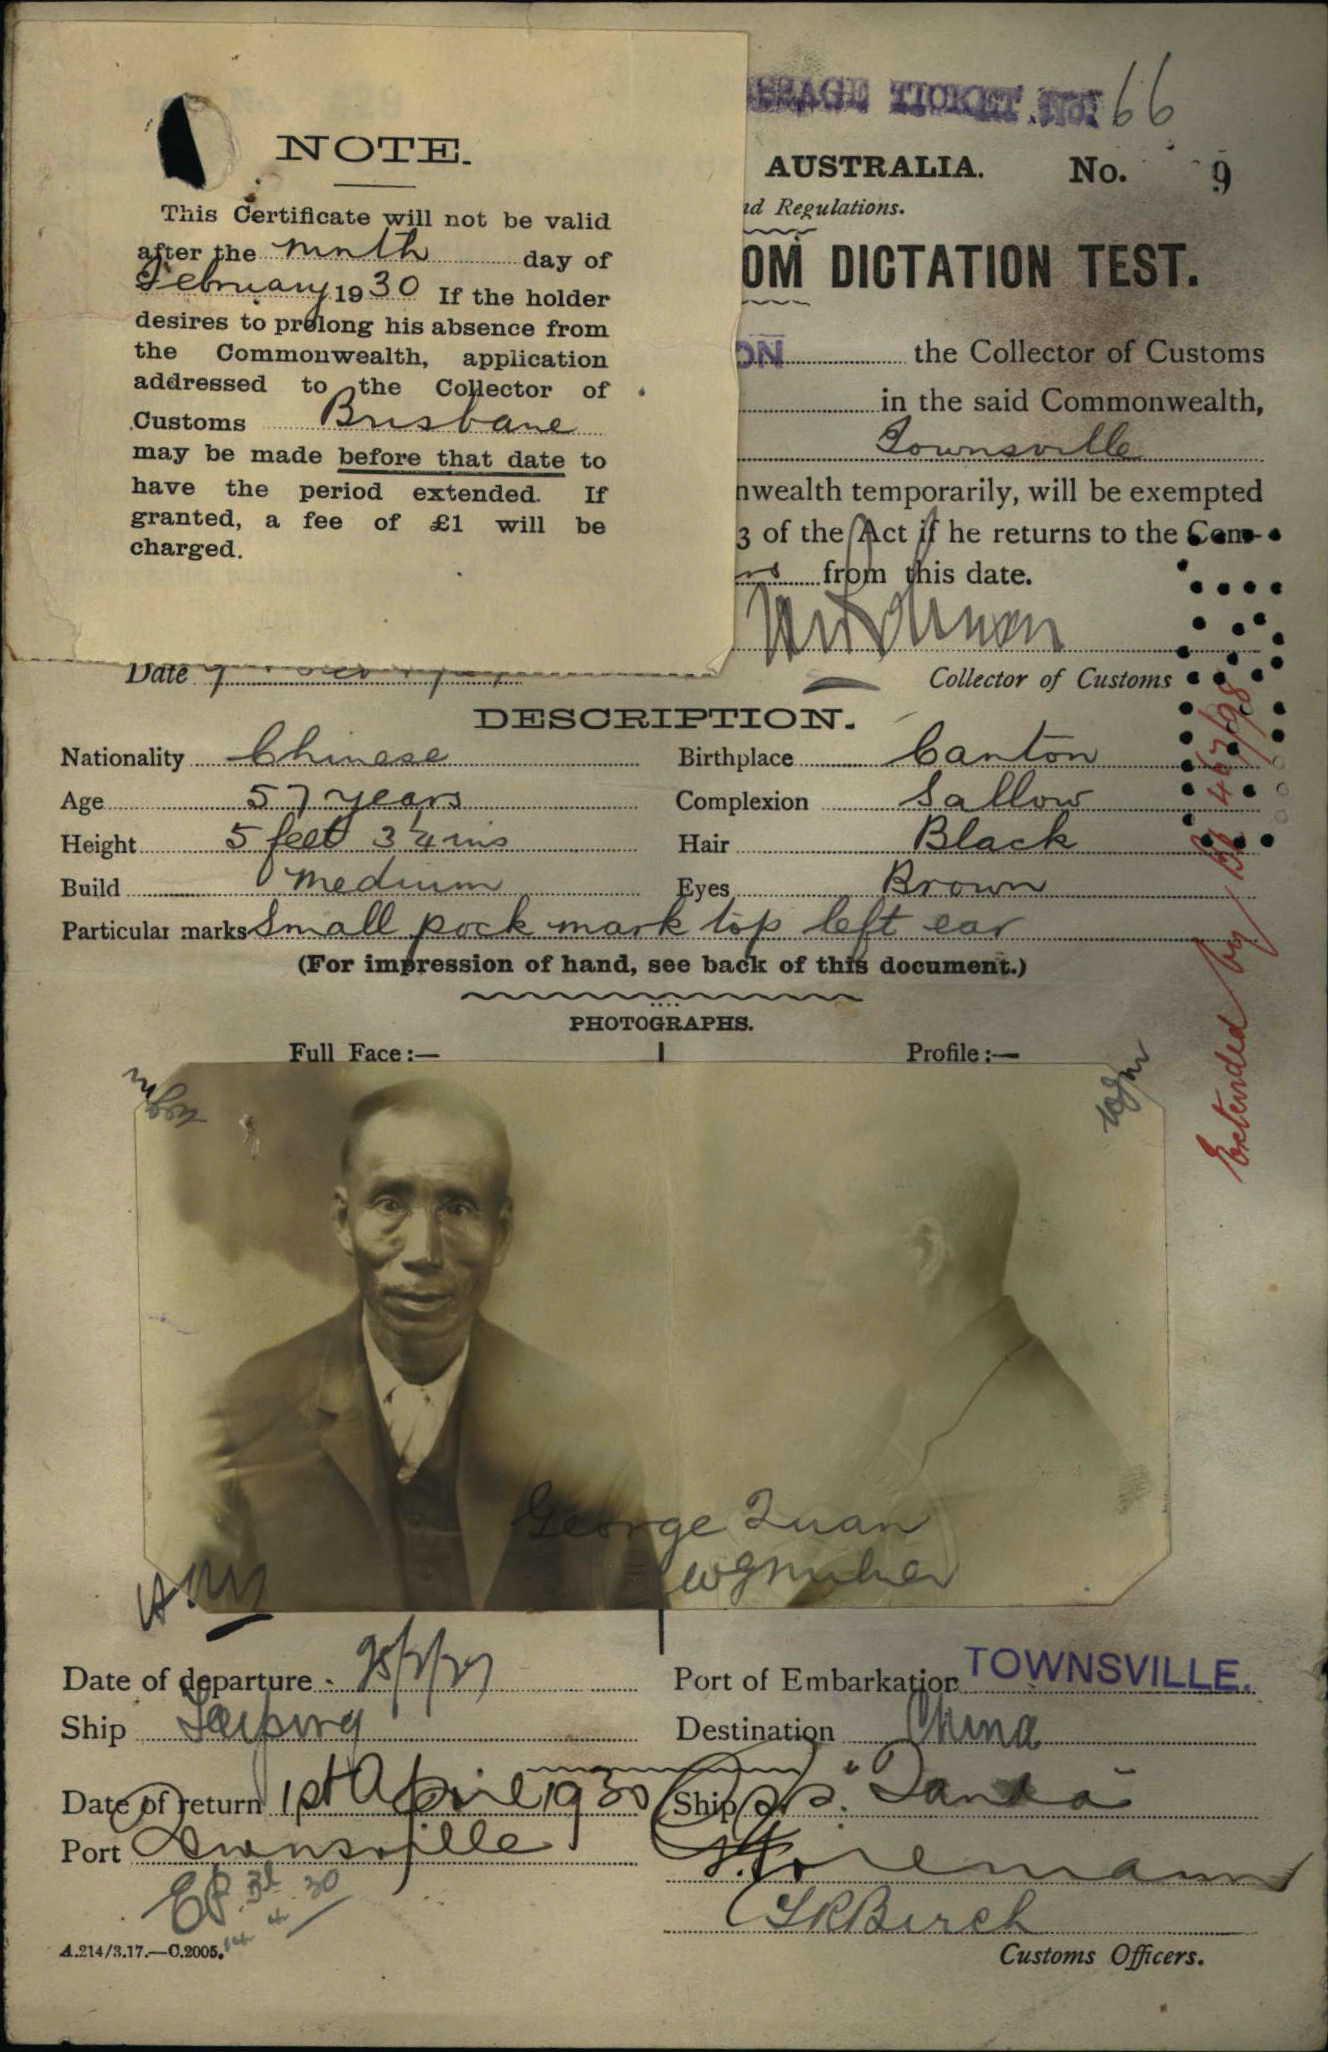 NOTE.
This Certificate will not be valid
after the ninth day of
February 1930 If the holder
desires to prolong his absence from
the Commonwealth, application
addressed to the Collector of
Customs Brisbane
may be made before that date to
have the period extended. If
granted, a fee of £1 will be
charged.
SSAGE TICKET No. 66
AUSTRALIA. No. 9
nd Regulations.
OM DICTATION TEST.
ON the Collector of Customs
in the said Commonwealth,
Townsville
nwealth temporarily, will be exempted
3 of the Act if he returns to the Com-
rs from this date.
Date
Collector of Customs
DESCRIPTION.
Nationality Chinese Birthplace Canton
Age 57 years Complexion Sallow
Height 5 feet 3 1/4 ins Hair Black
Build Medium Eyes Brown
Particular marks Small pock mark top left ear
(For impression of hand, see back of this document.)
PHOTOGRAPHS.
Full Face:— Profile:—
Extended by
George Quan
Date of departure Port of Embarkation TOWNSVILLE.
Ship Taiping Destination China
Date of return 1st April 1930 Ship S.S. "Tanda"
Port Townsville
SRBirch
A.214/3.17.—C.2005.
Customs Officers.